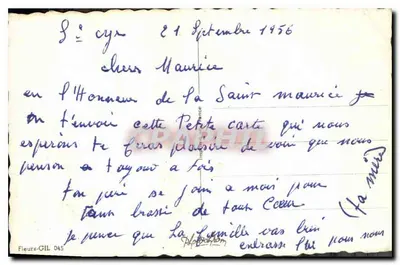 St cyr 21 Septembre 1956
chers Maurice
en l'Honneur de la Saint maurice je
t'envoie cette Petite carte qui nous
esperons te feras plaisir de voir que nous
penson a toi
ton père se joint a moi pour
de tout Cœur
Je pence que la famille vas bien
embrasse les pour nous
(ta mère)
Fleurs-GIL 045